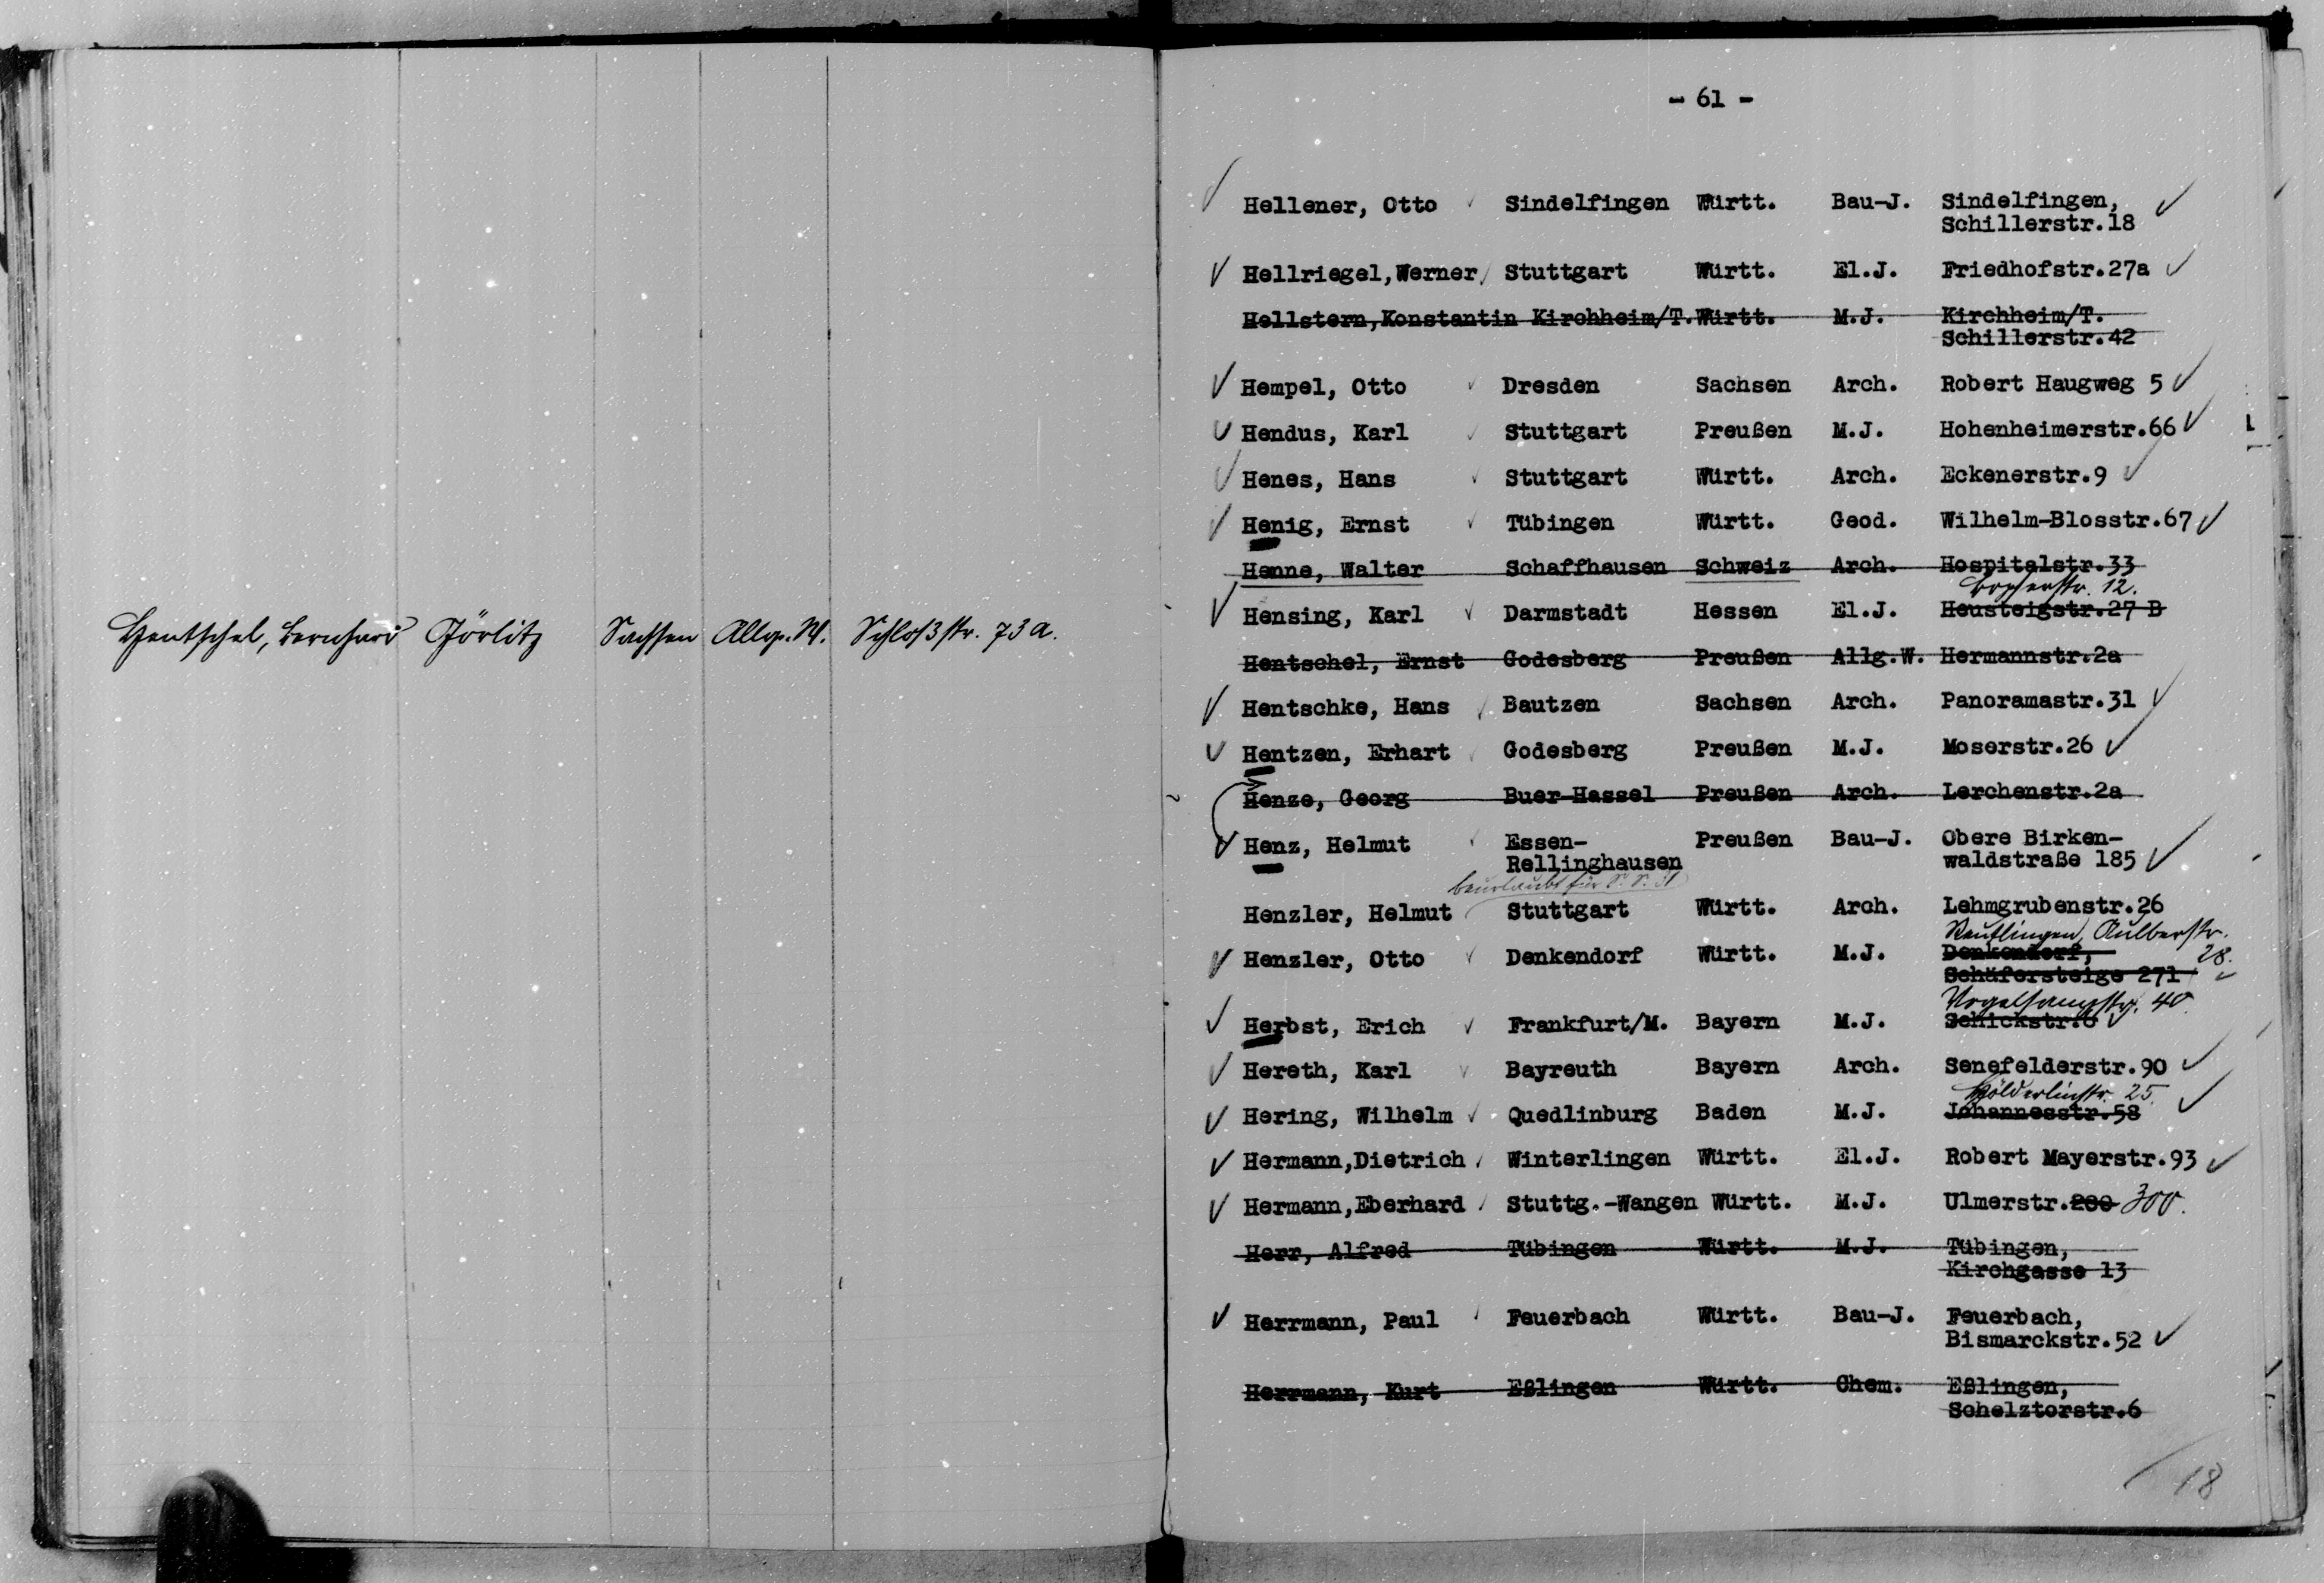 Hentschel, Bernhard Görlitz Sachsen Allg. W. Schloßstr. 73 a.
- 61 -
Hellener, Otto Sindelfingen Württ. Bau-J. Sindelfingen,
Schillerstr.18
Hellriegel,Werner Stuttgart Württ. El.J. Friedhofstr.27a
Hellstern,Konstantin Kirchheim/T. Württ. M.J. Kirchheim/T.
Schillerstr.42
Hempel, Otto Dresden Sachsen Arch. Robert Haugweg 5
Hendus, Karl Stuttgart Preußen M.J. Hohenheimerstr.66
Henes, Hans Stuttgart Württ. Arch. Eckenerstr.9
Henig, Ernst Tübingen Württ. Geod. Wilhelm-Blosstr.67
Henne, Walter Schaffhausen Schweiz Arch. Hospitalstr.33
Bopserstr. 12.
Hensing, Karl Darmstadt Hessen El.J. Heusteigstr.27 B
Hentschel, Ernst Godesberg Preußen Allg.W. Hermannstr.2a
Hentschke, Hans Bautzen Sachsen Arch. Panoramastr.31
Hentzen, Erhart Godesberg Preußen M.J. Moserstr.26
Henze, Georg Buer-Hassel Preußen Arch. Lerchenstr.2a
Henz, Helmut Essen- Preußen Bau-J. Obere Birken-
Rellinghausen waldstraße 185
beurlaubt für S. S. 31
Henzler, Helmut Stuttgart Württ. Arch. Lehmgrubenstr.26
Reutlingen, Aulberstr.
28.
Henzler, Otto Denkendorf Württ. M.J. Denkendorf,
Schäfersteige 271
Vogelsangstr. 40.
Herbst, Erich Frankfurt/M. Bayern M.J. Schickstr.6
Hereth, Karl Bayreuth Bayern Arch. Senefelderstr.90
Hölderlinstr. 25.
Hering, Wilhelm Quedlinburg Baden M.J. Johannesstr.58
Hermann,Dietrich Winterlingen Württ. El.J. Robert Mayerstr.93
Hermann,Eberhard Stuttg.-Wangen Württ. M.J. Ulmerstr.200 300.
Herr, Alfred Tübingen Württ. M.J. Tübingen,
Kirchgasse 13
Herrmann, Paul Feuerbach Württ. Bau-J. Feuerbach,
Bismarckstr.52
Herrmann, Kurt Eßlingen Württ. Chem. Eßlingen,
Schelztorstr.6
18